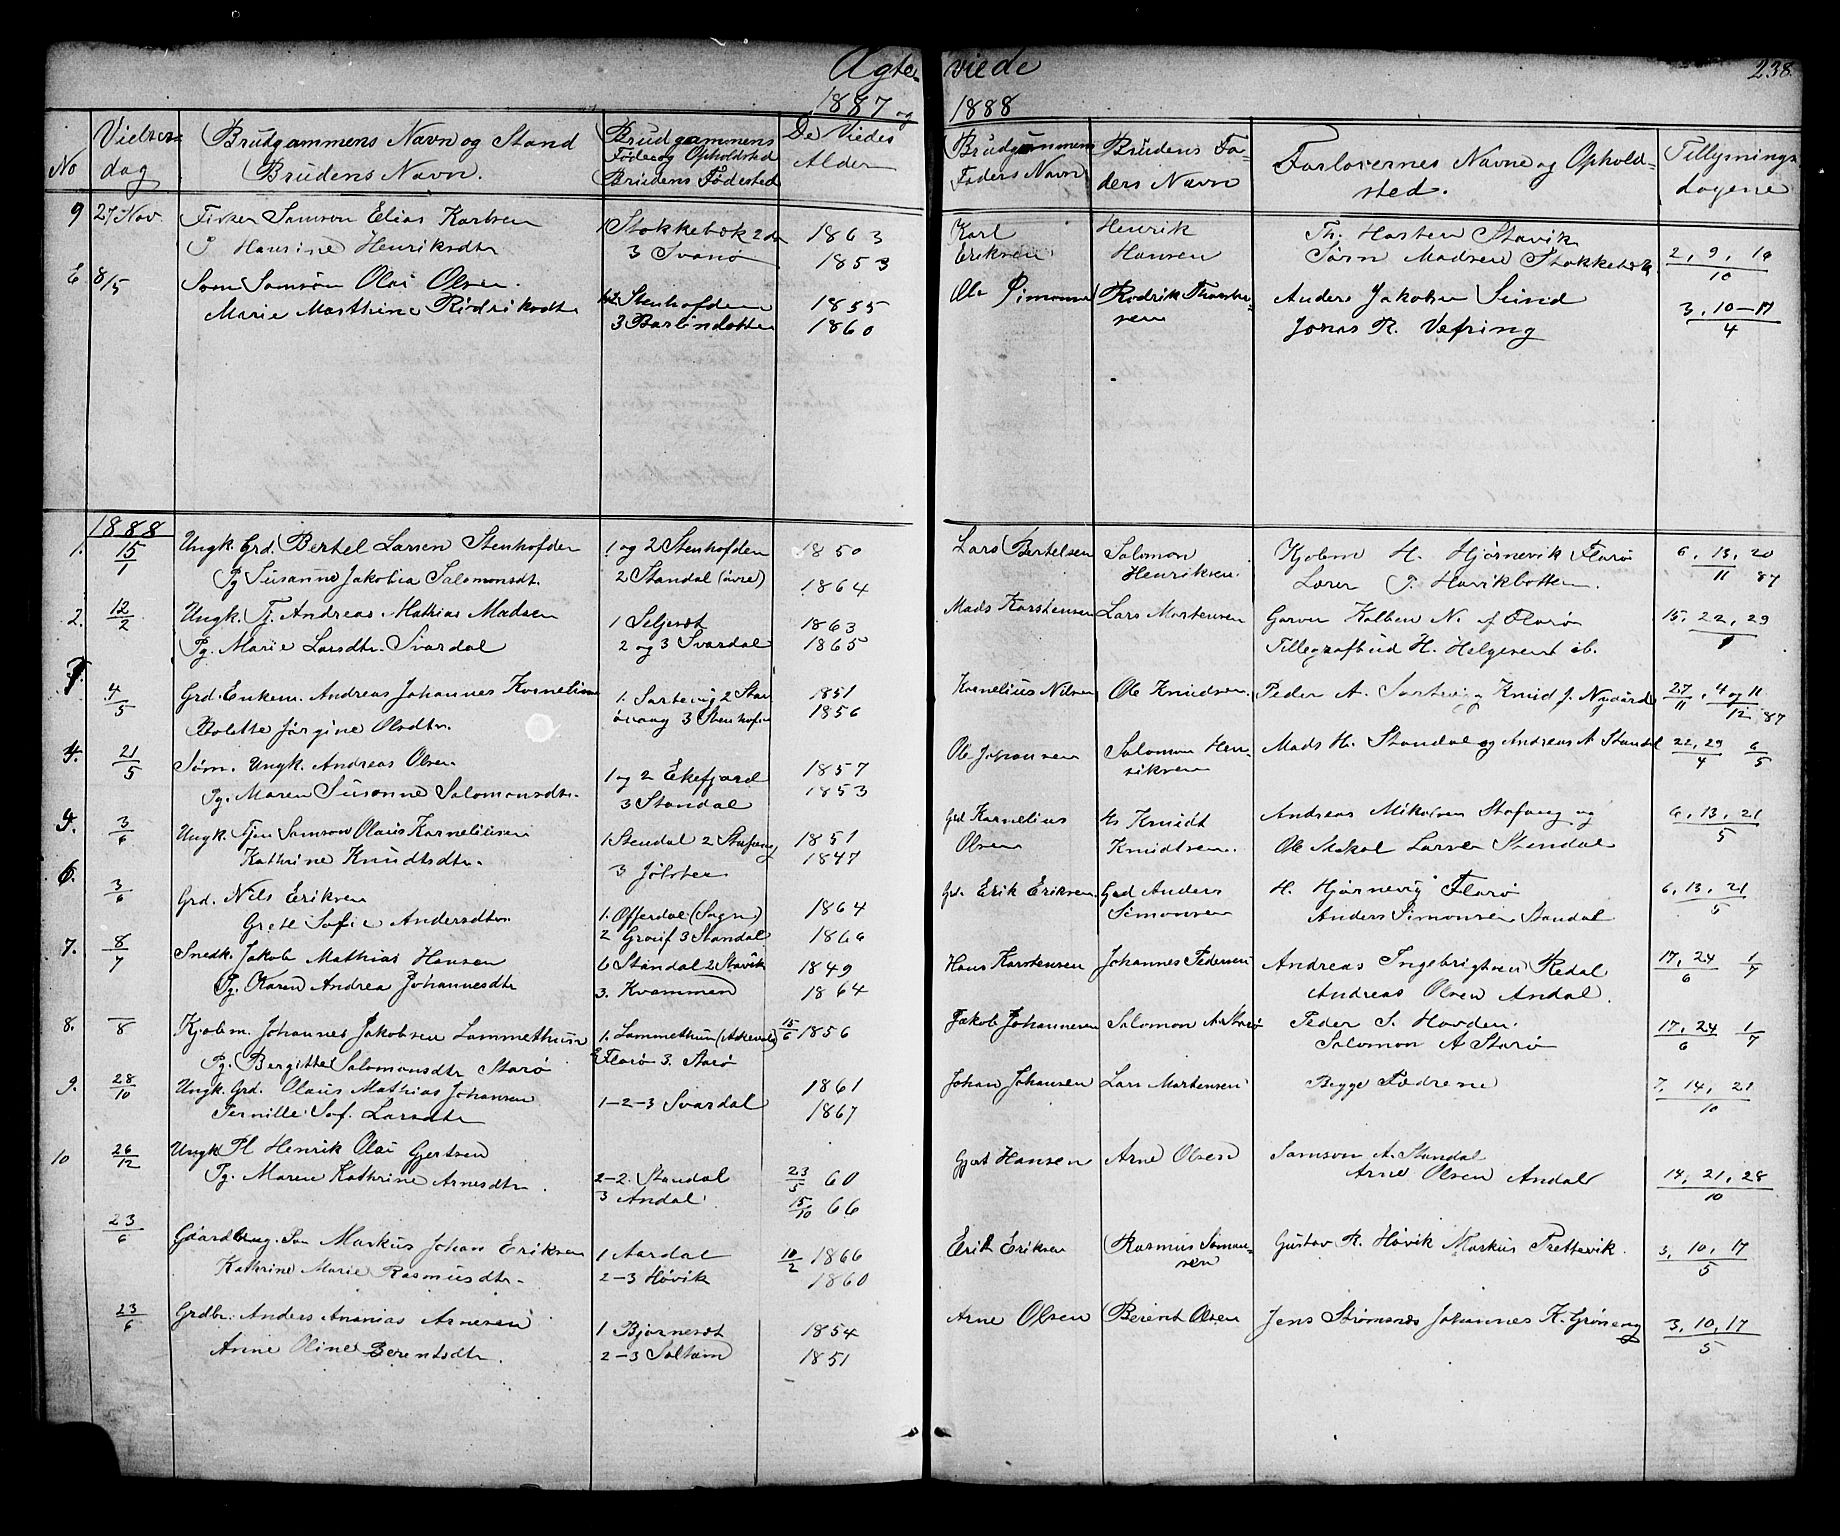 Ægteviede 238
1887 og 1888
No
Vielsesdag
Brudgommens Navn og Stand
Brudens Navn.
Brudgommens
Føde og Opholdsted
Brudens Fødested
De Viedes
Alder
Brudgommens
Faders Navn
Brudens Faders Navn
Forlovernes Navne og Opholdsted.
Tillysningsdagene
9 27 Nov. Samson Elias Karlsen 1 Stokkebæk 2 1863 Karl Henrik Th. Hasten Stavik
P Hansine Henriksdtr 3 Svanø 1853 Eriksen Hansen Sørn Madsen Stokkebæk 2, 9, 16/10
E 8/5 Søm Samson Olai Olsen. 1-2 Stenhofden 1855 Ole Simonsen Rodrik Anders Jakobsen Seind 3, 10-17/4
Marie Marthine Rodriksdtr 3 Barlindbotten 1860 Jonas R. Vefring
1888
1. 15/1 Ungk. Grd. Bertel Larsen Stenhofden 1 og 2 Stenhofden 1850 Lars Bertelsen Salomon Kjøbm H. Hjørnevik Florø 6, 13, 20/11 87
Pg Susanne Jakobia Salomonsdt. 2 Standal (övre) 1864 Henriksen. Lærer P. Havikbotten.
2. 12/2 Ungk. Tj. Andreas Mathias Madsen 1 Seljeset 1863 Mads Karstensen Lars Mortensen Garver Kolben N. af Florø 15, 22, 29/1
Pg. Marie Larsdtr. Svardal 2 og 3 Svardal 1865 Tillegrafbud H. Helgesent ib.
3. 4/5 Grd. Enkem. Andreas Johannes Kornelius 1. Sortevig 2 1851 Kornelius Nilsen Ole Knudsen. Peder A. Sortevig Knud J. Nygård 27/11, 4 og 11/12 87
Bolette Jørgine Olsdtr. 3 Stenhofden 1856
4. 21/5 Søm. Ungk. Andreas Olsen. 1 og 2 Ekefjord 1857 Ole Johansen Salomon Henriksen Mads H. Standal og Andreas A Standal 22, 29/4 6/5
Pg. Maren Susanne Salomonsdtr. 3 Standal 1853
5. 3/6 Ungk. Tjen Samson Olaus Korneliusen 1 Standal 2 Stafang 1851 Grd Kornelius Knudt Andreas Mikalsen Stafang og 6, 13, 21/5
Kathrine Knudtsdtr. 3 Jölster 1847 Olsen Knudtsen. Ole Mikal Larsen Standal
6. 3/6 Grd. Nils Eriksen 1. Offerdal (Sogn) 1864 Gd. Erik Eriksen. Grd Anders H. Hjørnevig Florø 6, 13, 21/5
Grete Sofie Andersdtr 2 3 Standal 1866 Simonsen Anders Simonsen Standal
7. 8/7 Snedk. Jakob Mathias Hansen Standal 2 Stavik 1849 Hans Karstensen Johannes Pedersen Andreas Ingebrigtsen Redal 17, 24/6 1/7
Pg. Karen Andrea Johannesdtr 3. Kvammen 1864 Andreas Olsen Andal.
8. /8 Kjøbm. Johannes Jakobsen Lammethun 1. Lammethun (Askevold) 15/6 1856 Jakob Johannesen Salomon A Starø Peder S. Hovden. 17, 24/6 1/7
Pg. Bergitte Salomonsdtr Starø 2 Florø 3. Starø Salomon A Starø
9. 28/10 Ungk. Grd. Olaus Mathias Johansen 1-2-3 Svardal 1861 Johan Johansen Lars Mortensen Begge Fædrene 7, 14, 21/10
Pernille Sof. Larsdtr 1867
10 26/12 Ungk Pl Henrik Olai Gjertsen 2-2. Standal 23/5 60 Gjert Hansen Arne Olsen Samson A. Standal 14, 21, 28/10
Pg. Maren Kathrine Arnesdtr. 3 Andal 15/10 66 Arne Olsen Andal
23/6 Gaardbrug. Søn Markus Johan Eriksen 1 Aardal 10/2 1866 Erik Eriksen Rasmus Simonsen Gustav R. Høvik Markus Trettevik. 3, 10, 17/5
Kathrine Marie Rasmusdtr. 2-3 Høvik 1860
23/6 Grdbr. Anders Ananias Arnesen 1 Bjørneset 1854 Arne Olsen Berent Olsen Jens Strømsnes Johannes K. Grøneng 3, 10, 17/5
Anne Oline Berentsdtr. 2-3 Soltum 1851